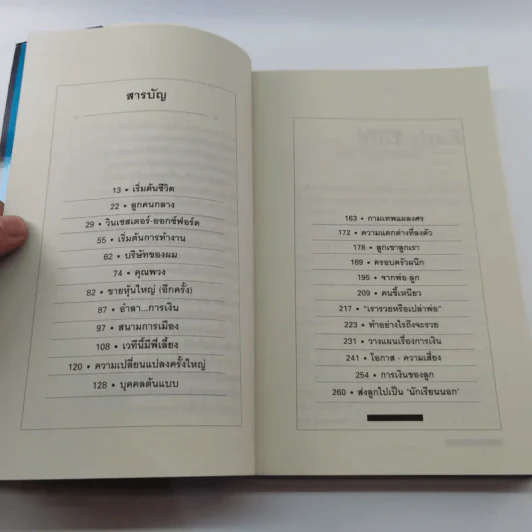 สารบัญ
13 • เริ่มต้นชีวิต
22 • ลูกคนกลาง
29 • วินเชสเตอร์-ออกซ์ฟอร์ด
55 • เริ่มต้นการทำงาน
62 • บริษัทของผม
74 • คุณพวง
82 • ขายหุ้นใหญ่ (อีกครั้ง)
87 • อำลา...การเงิน
97 • สนามการเมือง
108 • เวทีนี้มีพี่เลี้ยง
120 • ความเปลี่ยนแปลงครั้งใหญ่
128 • บุคคลต้นแบบ
163 • กามเทพแผลงศร
172 • ความแตกต่างที่ลงตัว
178 • ลูกเขาลูกเรา
189 • ครอบครัวผนึก
195 • จากพ่อ-ลูก
209 • คนขี้เหนียว
217 • "เรารวยหรือเปล่าพ่อ"
223 • ทำอย่างไรถึงจะรวย
231 • วางแผนเรื่องการเงิน
241 • โอกาส - ความเสี่ยง
254 • การเงินของลูก
260 • ส่งลูกไปเป็น 'นักเรียนนอก'